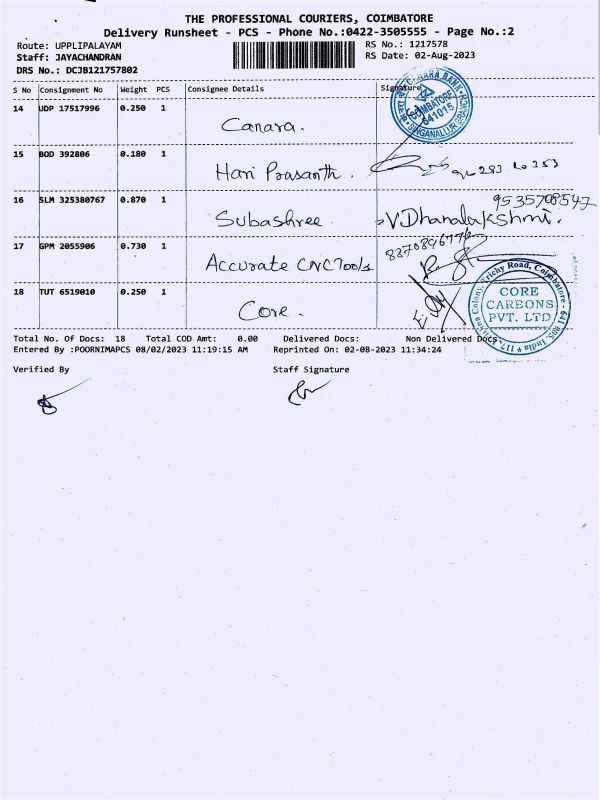 THE PROFESSIONAL COURIERS, COIMBATORE
Delivery Runsheet - PCS - Phone No.:0422-3505555 - Page No.:2
Route: UPPLIPALAYAM RS No.: 1217578
Staff: JAYACHANDRAN RS Date: 02-Aug-2023
DRS No.: DCJB121757802
S No Consignment No Weight PCS Consignee Details Signature
14 UDP 17517996 0.250 1 Canara.
CANARA BANK COIMBATORE 641015 SINGANALLUR BRANCH
15 BOD 392806 0.180 1 Hari Prasanth.
16 SLM 325380767 0.870 1 Subashree V.Dhanalakshmi.
9535708547
17 GPM 2055906 0.730 1 Accurate CNC Tools
18 TUT 6519010 0.250 1 Core.
CORE CARBONS PVT. LTD
Colony, Trichy Road, Coimbatore - 641 005, India * 117,
Total No. Of Docs: 18 Total COD Amt: 0.00 Delivered Docs: Non Delivered Docs:
Entered By :POORNIMAPCS 08/02/2023 11:19:15 AM Reprinted On: 02-08-2023 11:34:24
Verified By Staff Signature